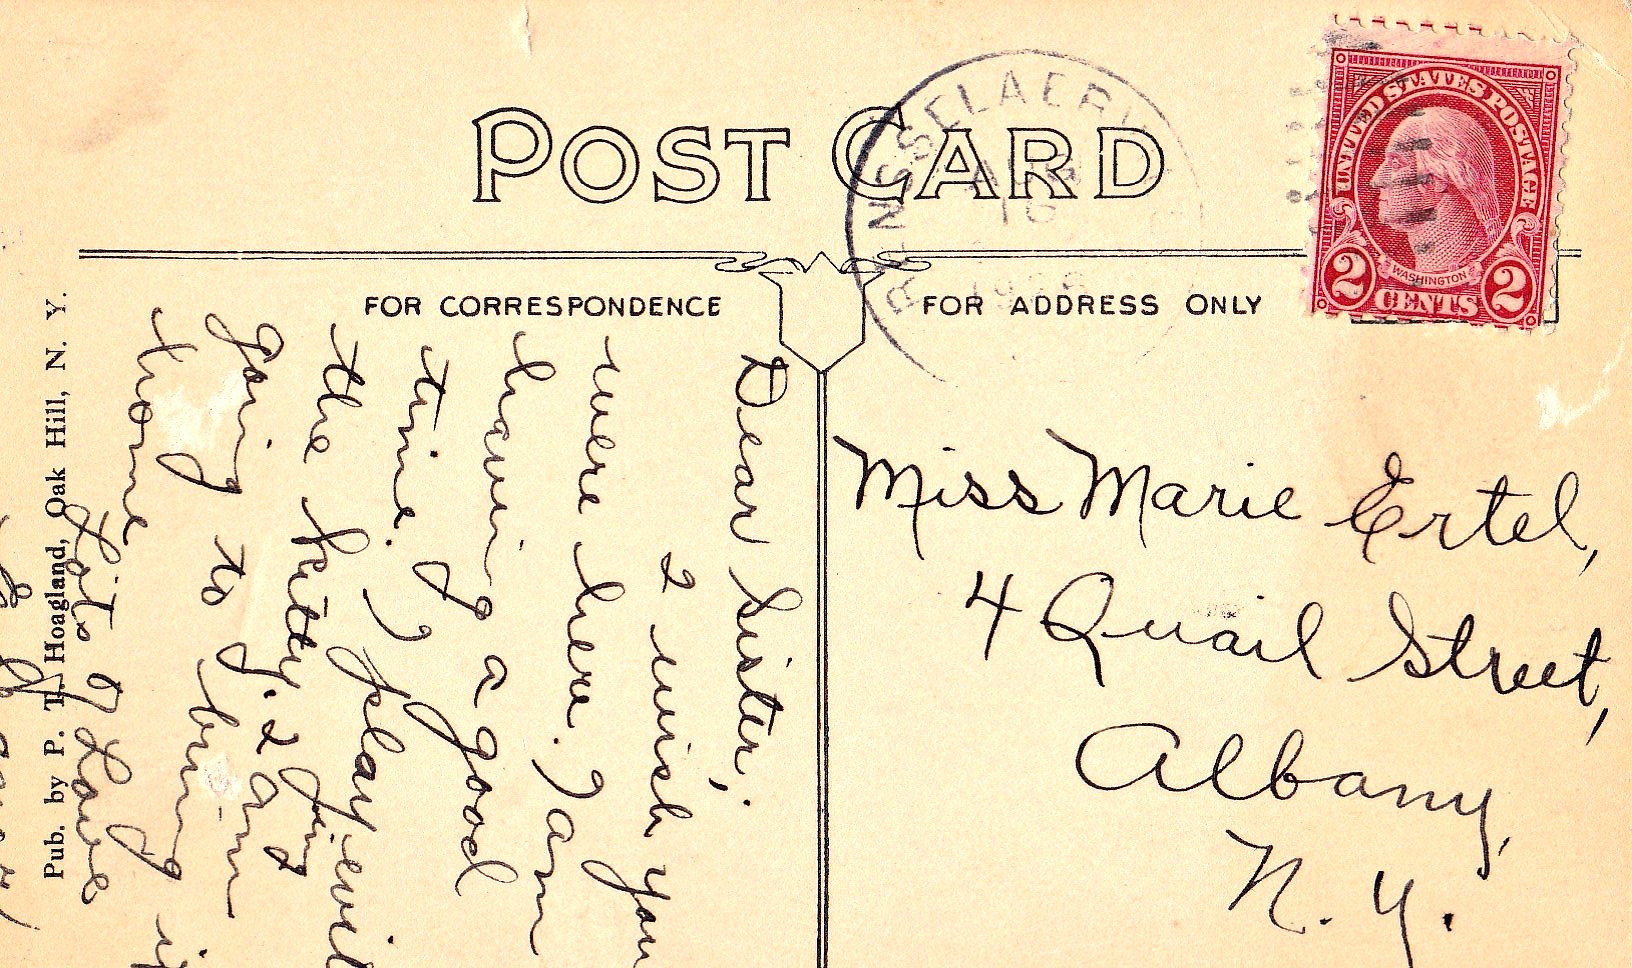 POST CARD
FOR CORRESPONDENCE
FOR ADDRESS ONLY
RENSSELAERV
10
UNITED STATES POSTAGE
WASHINGTON
2 CENTS 2
Miss Marie Ertel,
4 Quail Street,
Albany,
N. Y.
Dear Sister,
I wish you
were here. I am
having a good
time. I play with
the kitty
going to I am
going to bring it
home
Lots of Love
Pub. by P. T. Hoagland, Oak Hill, N. Y.